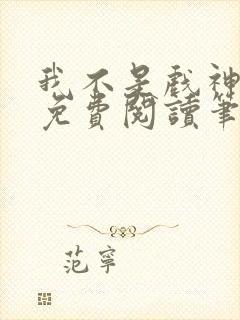 我不是戲神
免費閱讀筆
范寧